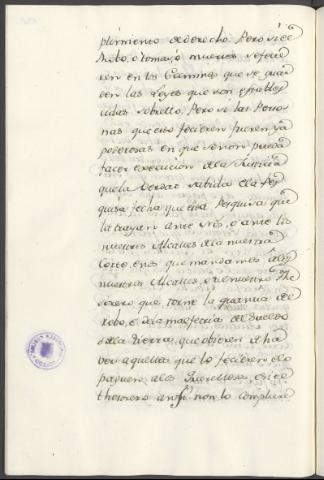 plimiento de derecho. Pero si el
Robo, o toma, o muertes se ficie
ren en los Caminos que se guar
den las Leyes que son estable
cidas sobrello. Pero si las Perso
nas que esto ficieren fueren ya
poderosas en que se non pueda
facer execucion de la Justicia
que la verdat sabida e la Pes
quisa fecha que esta Pesquisa que
la trayan ante Nós, o ante los
nuestros Alcalles de la nuestra
Corte, e nos que mandaremos a los
nuestros Alcalles, e a el nuestro The
sorero que torne la quantia del
robo, e de la malfetria del sueldo
o de la tierra, que obieren de ha
ver aquellos que lo ficieren, e lo
paguen a los Querellosos, e si el
thesorero ansi non lo compliere